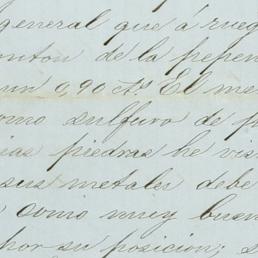 general que á rueg
onton de la pepen
un 0,90 cts. El me
omo sulfuro de p
ias piedras he vis
sus metales debe
como muy buen
por su posicion; s